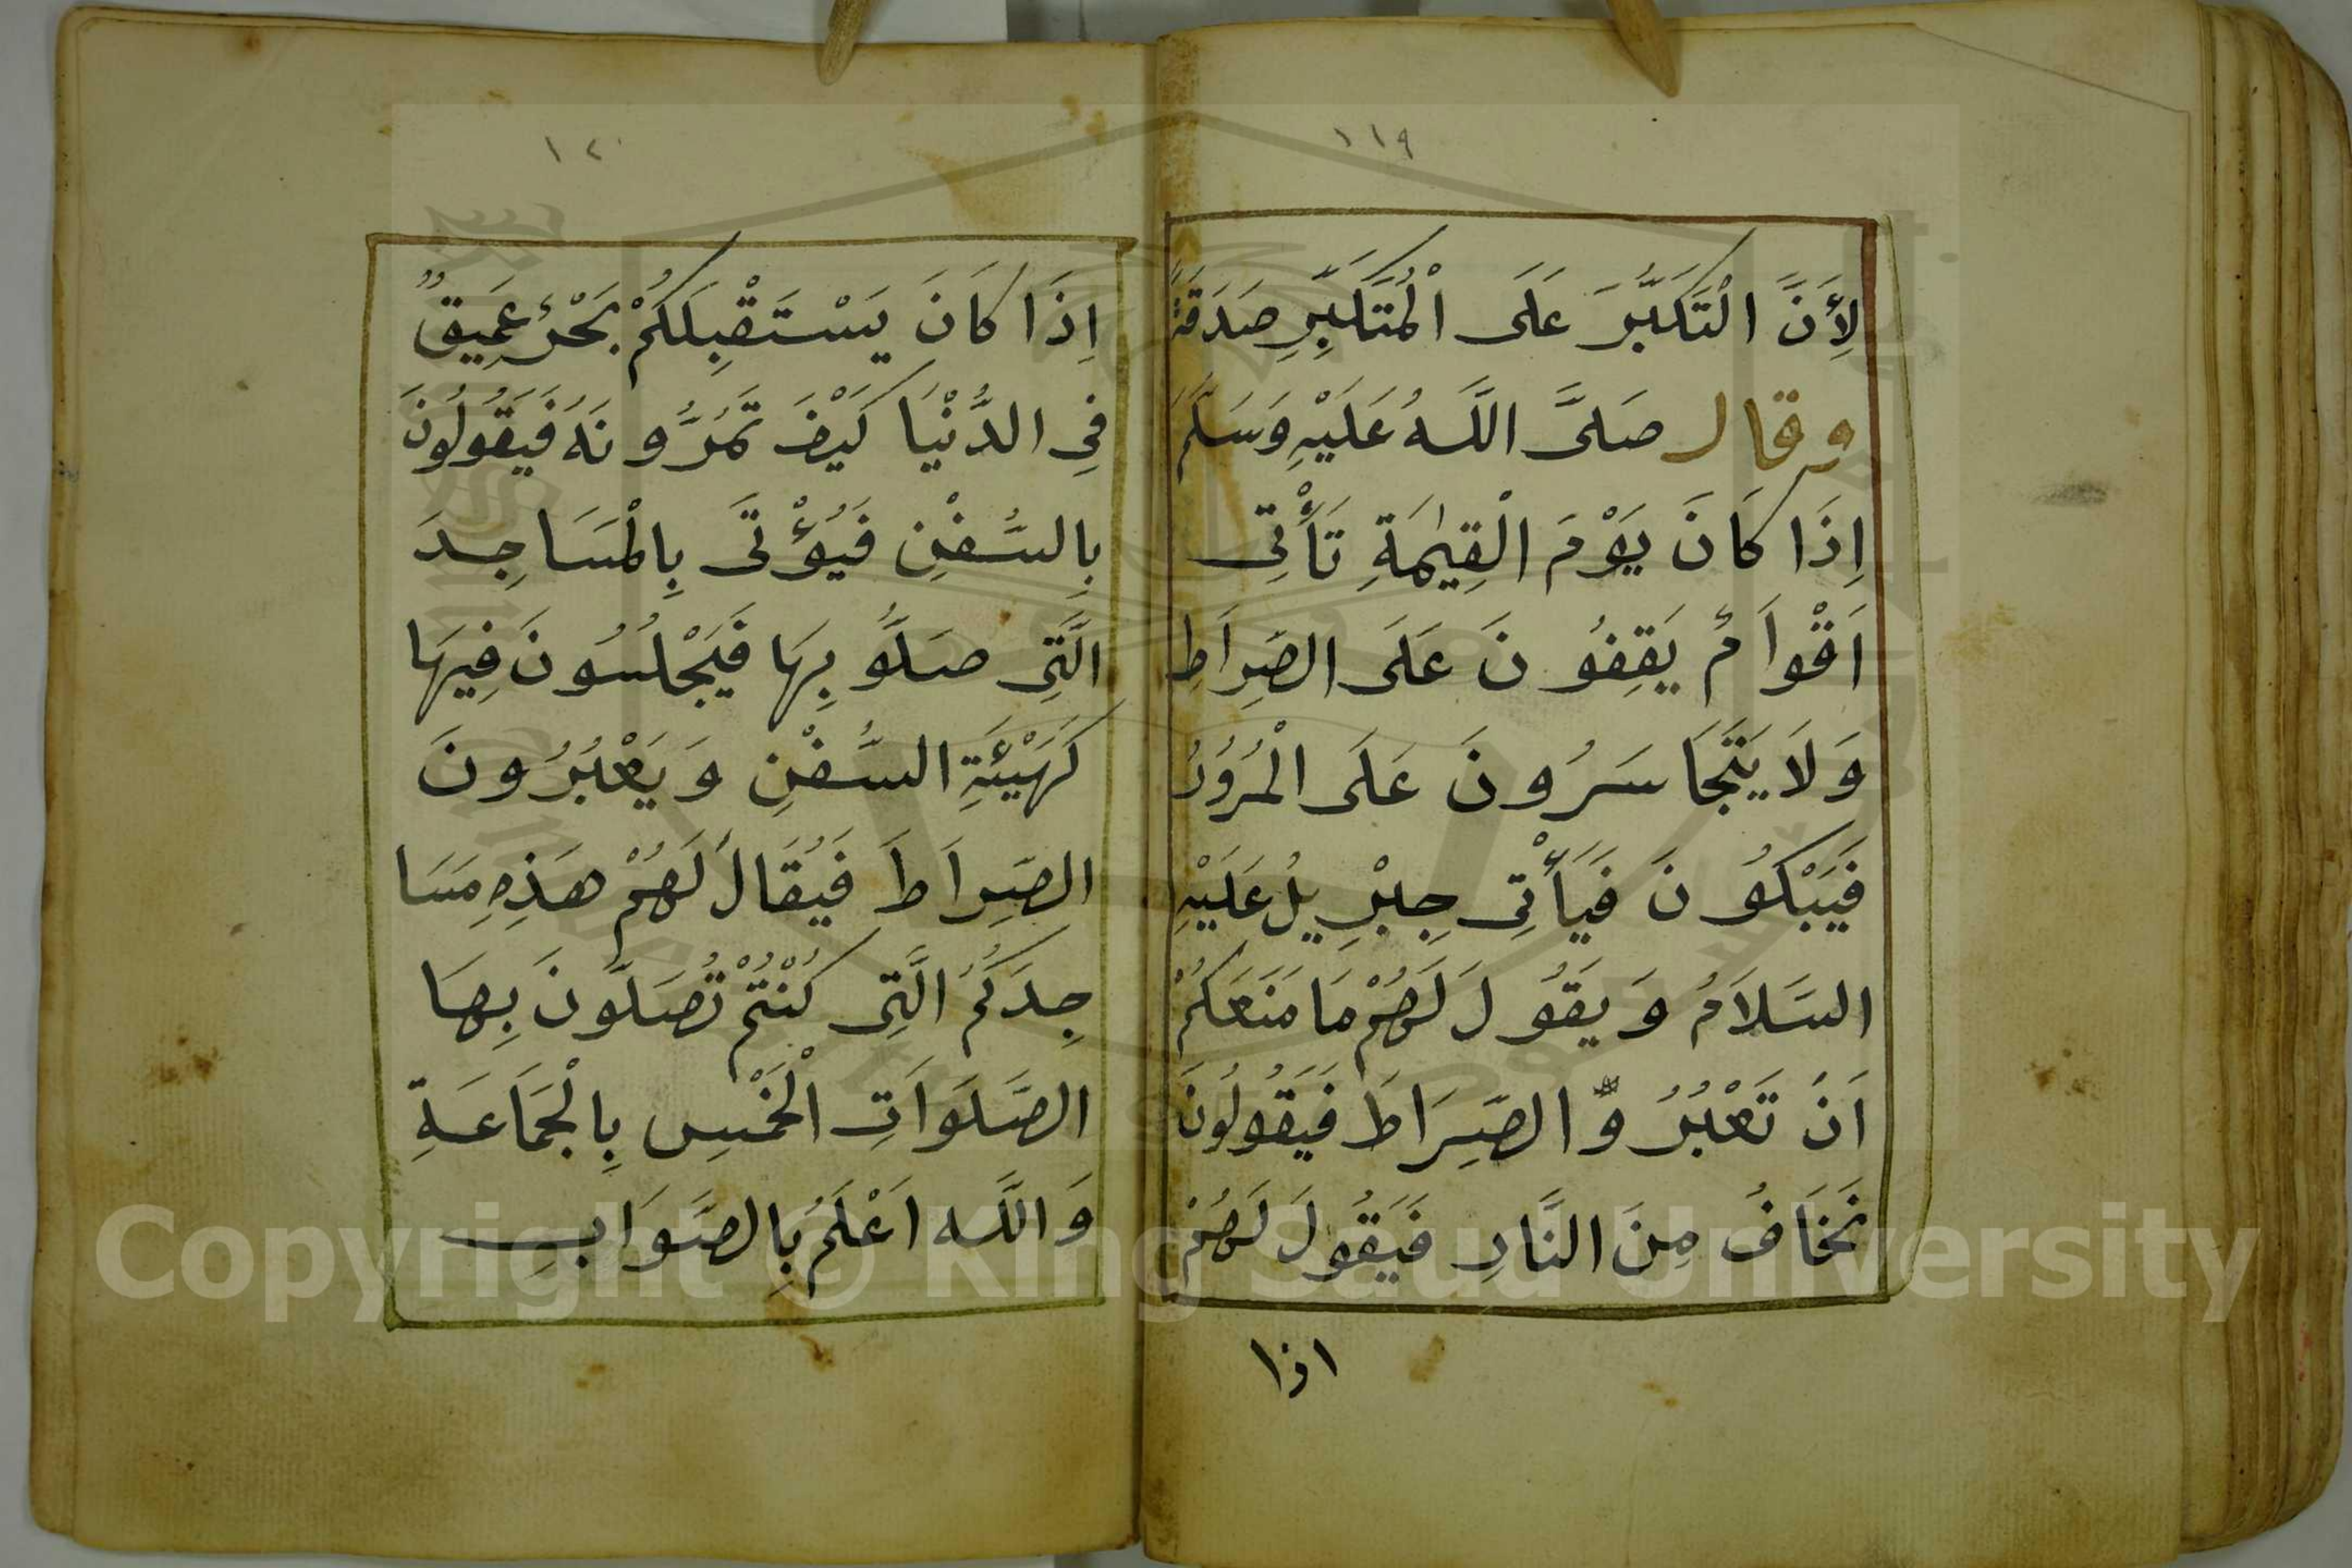 ١١٩
لِأَنَّ التَّكَبُّرَ عَلَى الْمُتَكَبِّرِ صَدَقَةٌ
وقال صَلَّى اللَّهُ عَلَيْهِ وَسَلَّمَ
اِذَا كَانَ يَوْمَ الْقِيٰمَةِ تَأْتِى
اَقْوَامٌ يَقِفُونَ عَلَى الصِّرَاطِ
وَلَا يَتَجَاسَرُونَ عَلَى الْمُرُورِ
فَيَبْكُونَ فَيَأْتِى جِبْرِيلُ عَلَيْهِ
السَّلَامُ وَيَقُولَ لَهُمْ مَا مَنَعَكُمْ
اَنْ تَعْبُرُوا الصِّرَاطَ فَيَقُولُونَ
نَخَافُ مِنَ النَّارِ فَيَقُولَ لَهُمْ
اذا
١٢٠
اِذَا كَانَ يَسْتَقْبِلَكُمْ بَحْرٌ عَمِيقٌ
فِي الدُّنْيَا كَيْفَ تَمُرُّونَهُ فَيَقُولُونَ
بِالسُّفْنِ فَيُؤْتَى بِالْمَسَاجِدَ
الَّتِى صَلَّوُ بِهَا فَيَجْلُسُونَ فِيهَا
كَهَيْئَةِ السُّفْنِ وَيَعْبُرُونَ
الصِّرَاطَ فَيُقَالُ لَهُمْ هَذِهِ مَسَا
جِدَكُمُ الَّتِى كُنْتُمْ تُصَلُّونَ بِهَا
الصَّلَوَاتِ الْخَمْسِ بِالْجَمَاعَةِ
وَاللَّه اَعْلَمُ بِالصَّوَابِ
Copyright © King Saud University